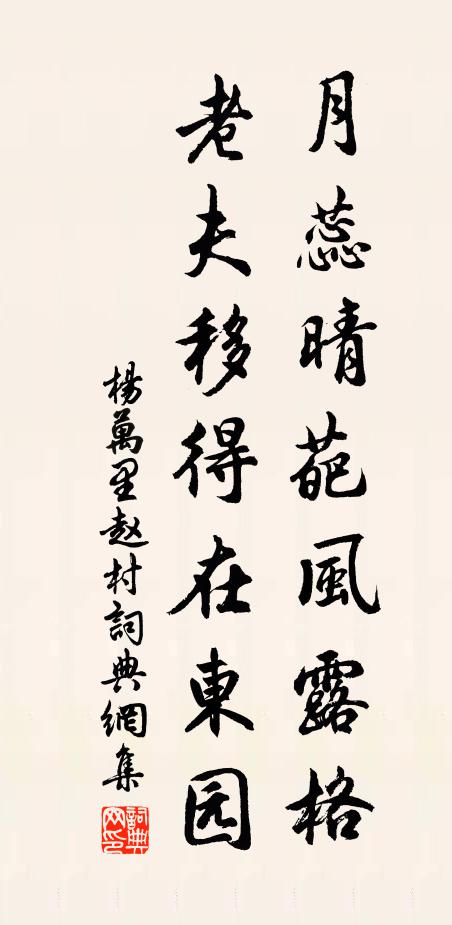 月蕊晴葩風露格
老夫移得在東园
楊萬里赵村詞典網集
詞典网印